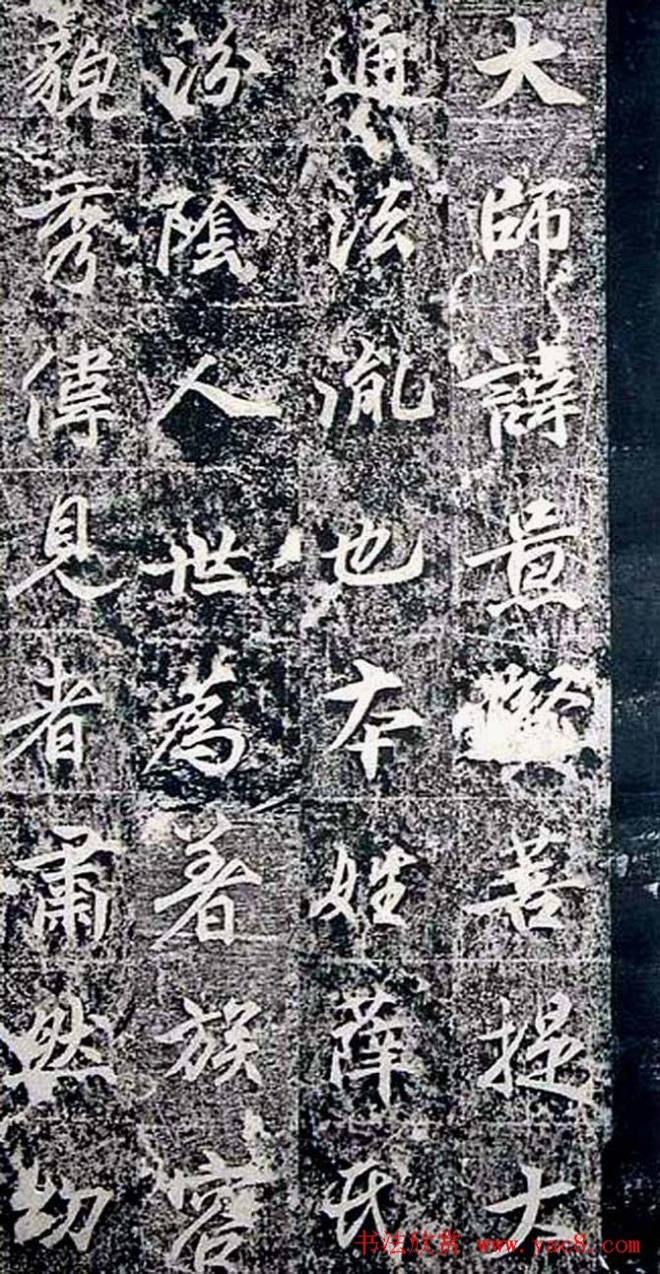 大師諱菩提大
通法胤也本姓薛氏
汾陰人世為著族容
貌秀偉見者肅然幼
书法欣赏 www.yac8.com